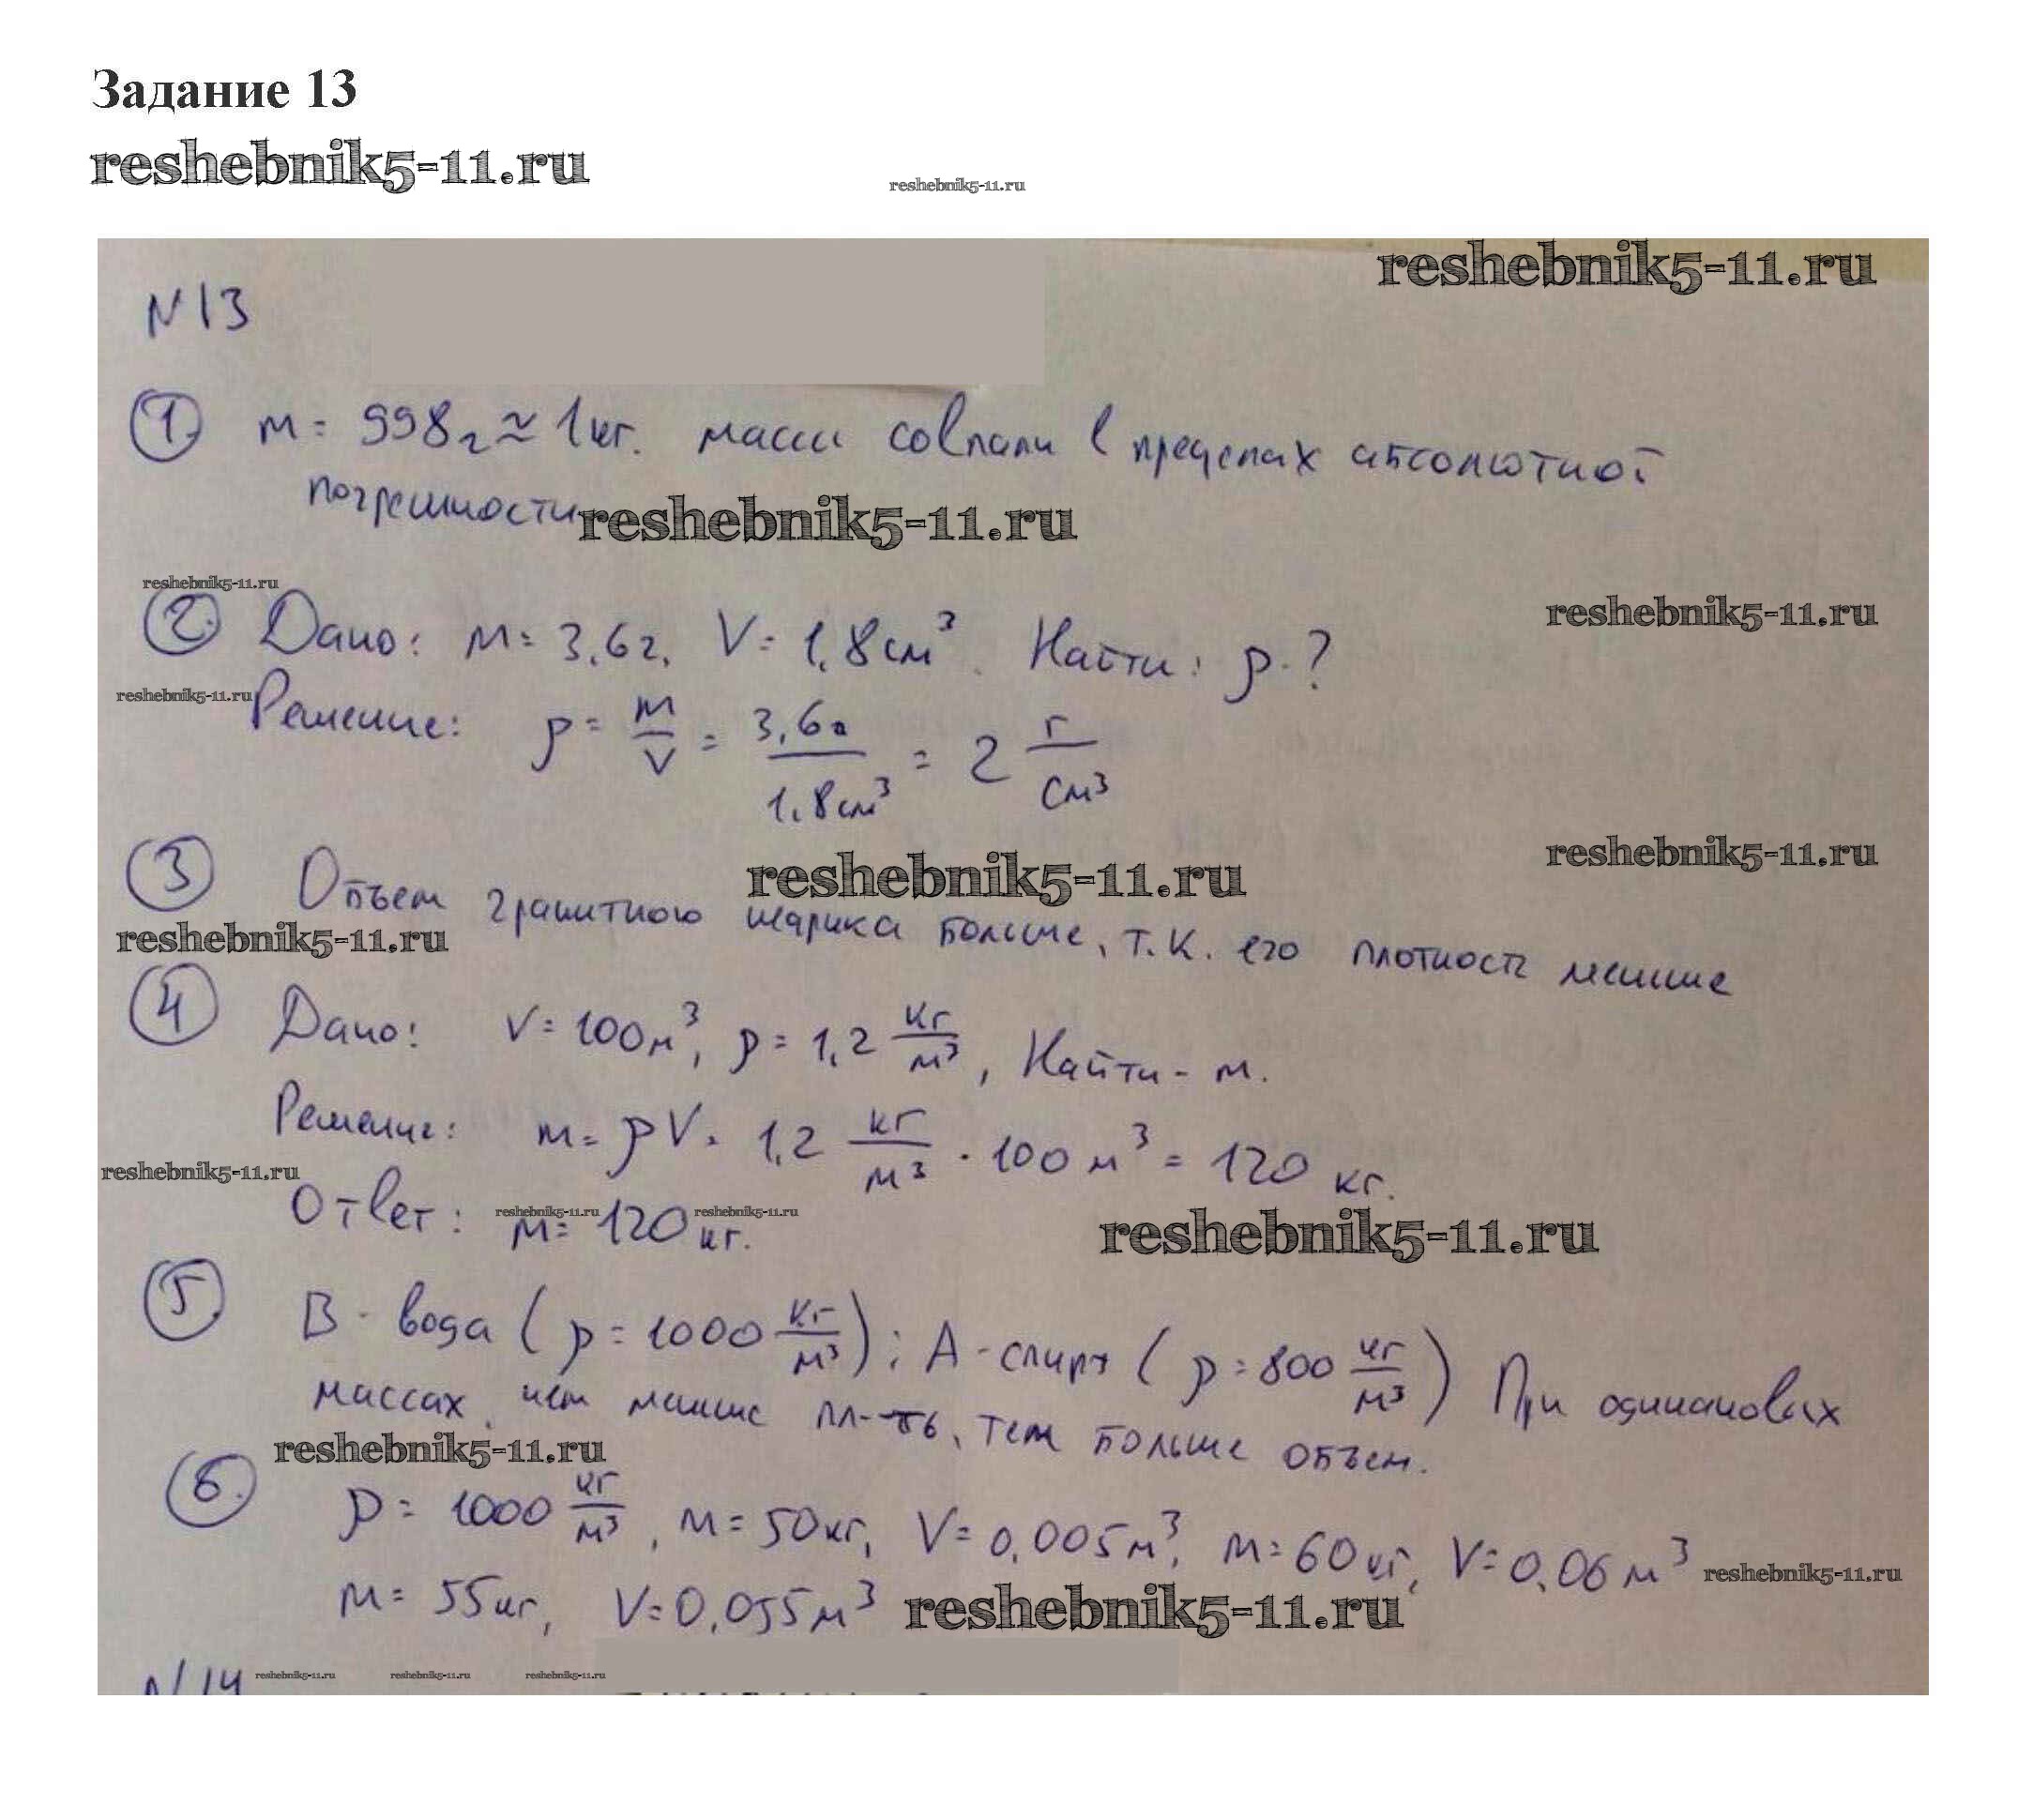 Задание 13
reshebnik5-11.ru
reshebnik5-11.ru
reshebnik5-11.ru
N13
1. m = 998г ≈ 1кг. массы совпали в пределах абсолютной
погрешности reshebnik5-11.ru
reshebnik5-11.ru
reshebnik5-11.ru
2. Дано: m = 3,6г, V = 1,8см³. Найти: ρ-?
reshebnik5-11.ru
Решение: ρ = m/V = 3,6г/1,8см³ = 2 г/см³
reshebnik5-11.ru
reshebnik5-11.ru
3 Объем гранитного шарика больше, т.к. его плотность меньше
reshebnik5-11.ru
4 Дано: V = 100м³, ρ = 1,2 кг/м³, Найти - m.
Решение: m = ρV = 1,2 кг/м³ · 100м³ = 120 кг.
reshebnik5-11.ru
reshebnik5-11.ru reshebnik5-11.ru
Ответ: m = 120кг.
reshebnik5-11.ru
5. В - вода (ρ = 1000 кг/м³); А - спирт (ρ = 800 кг/м³) При одинаковых
массах, чем меньше пл-ть, тем больше объем.
reshebnik5-11.ru
6. ρ = 1000 кг/м³, m = 50кг, V = 0,005м³, m = 60кг, V = 0,06м³
reshebnik5-11.ru
m = 55кг, V = 0,055м³ reshebnik5-11.ru
N14 reshebnik5-11.ru reshebnik5-11.ru reshebnik5-11.ru